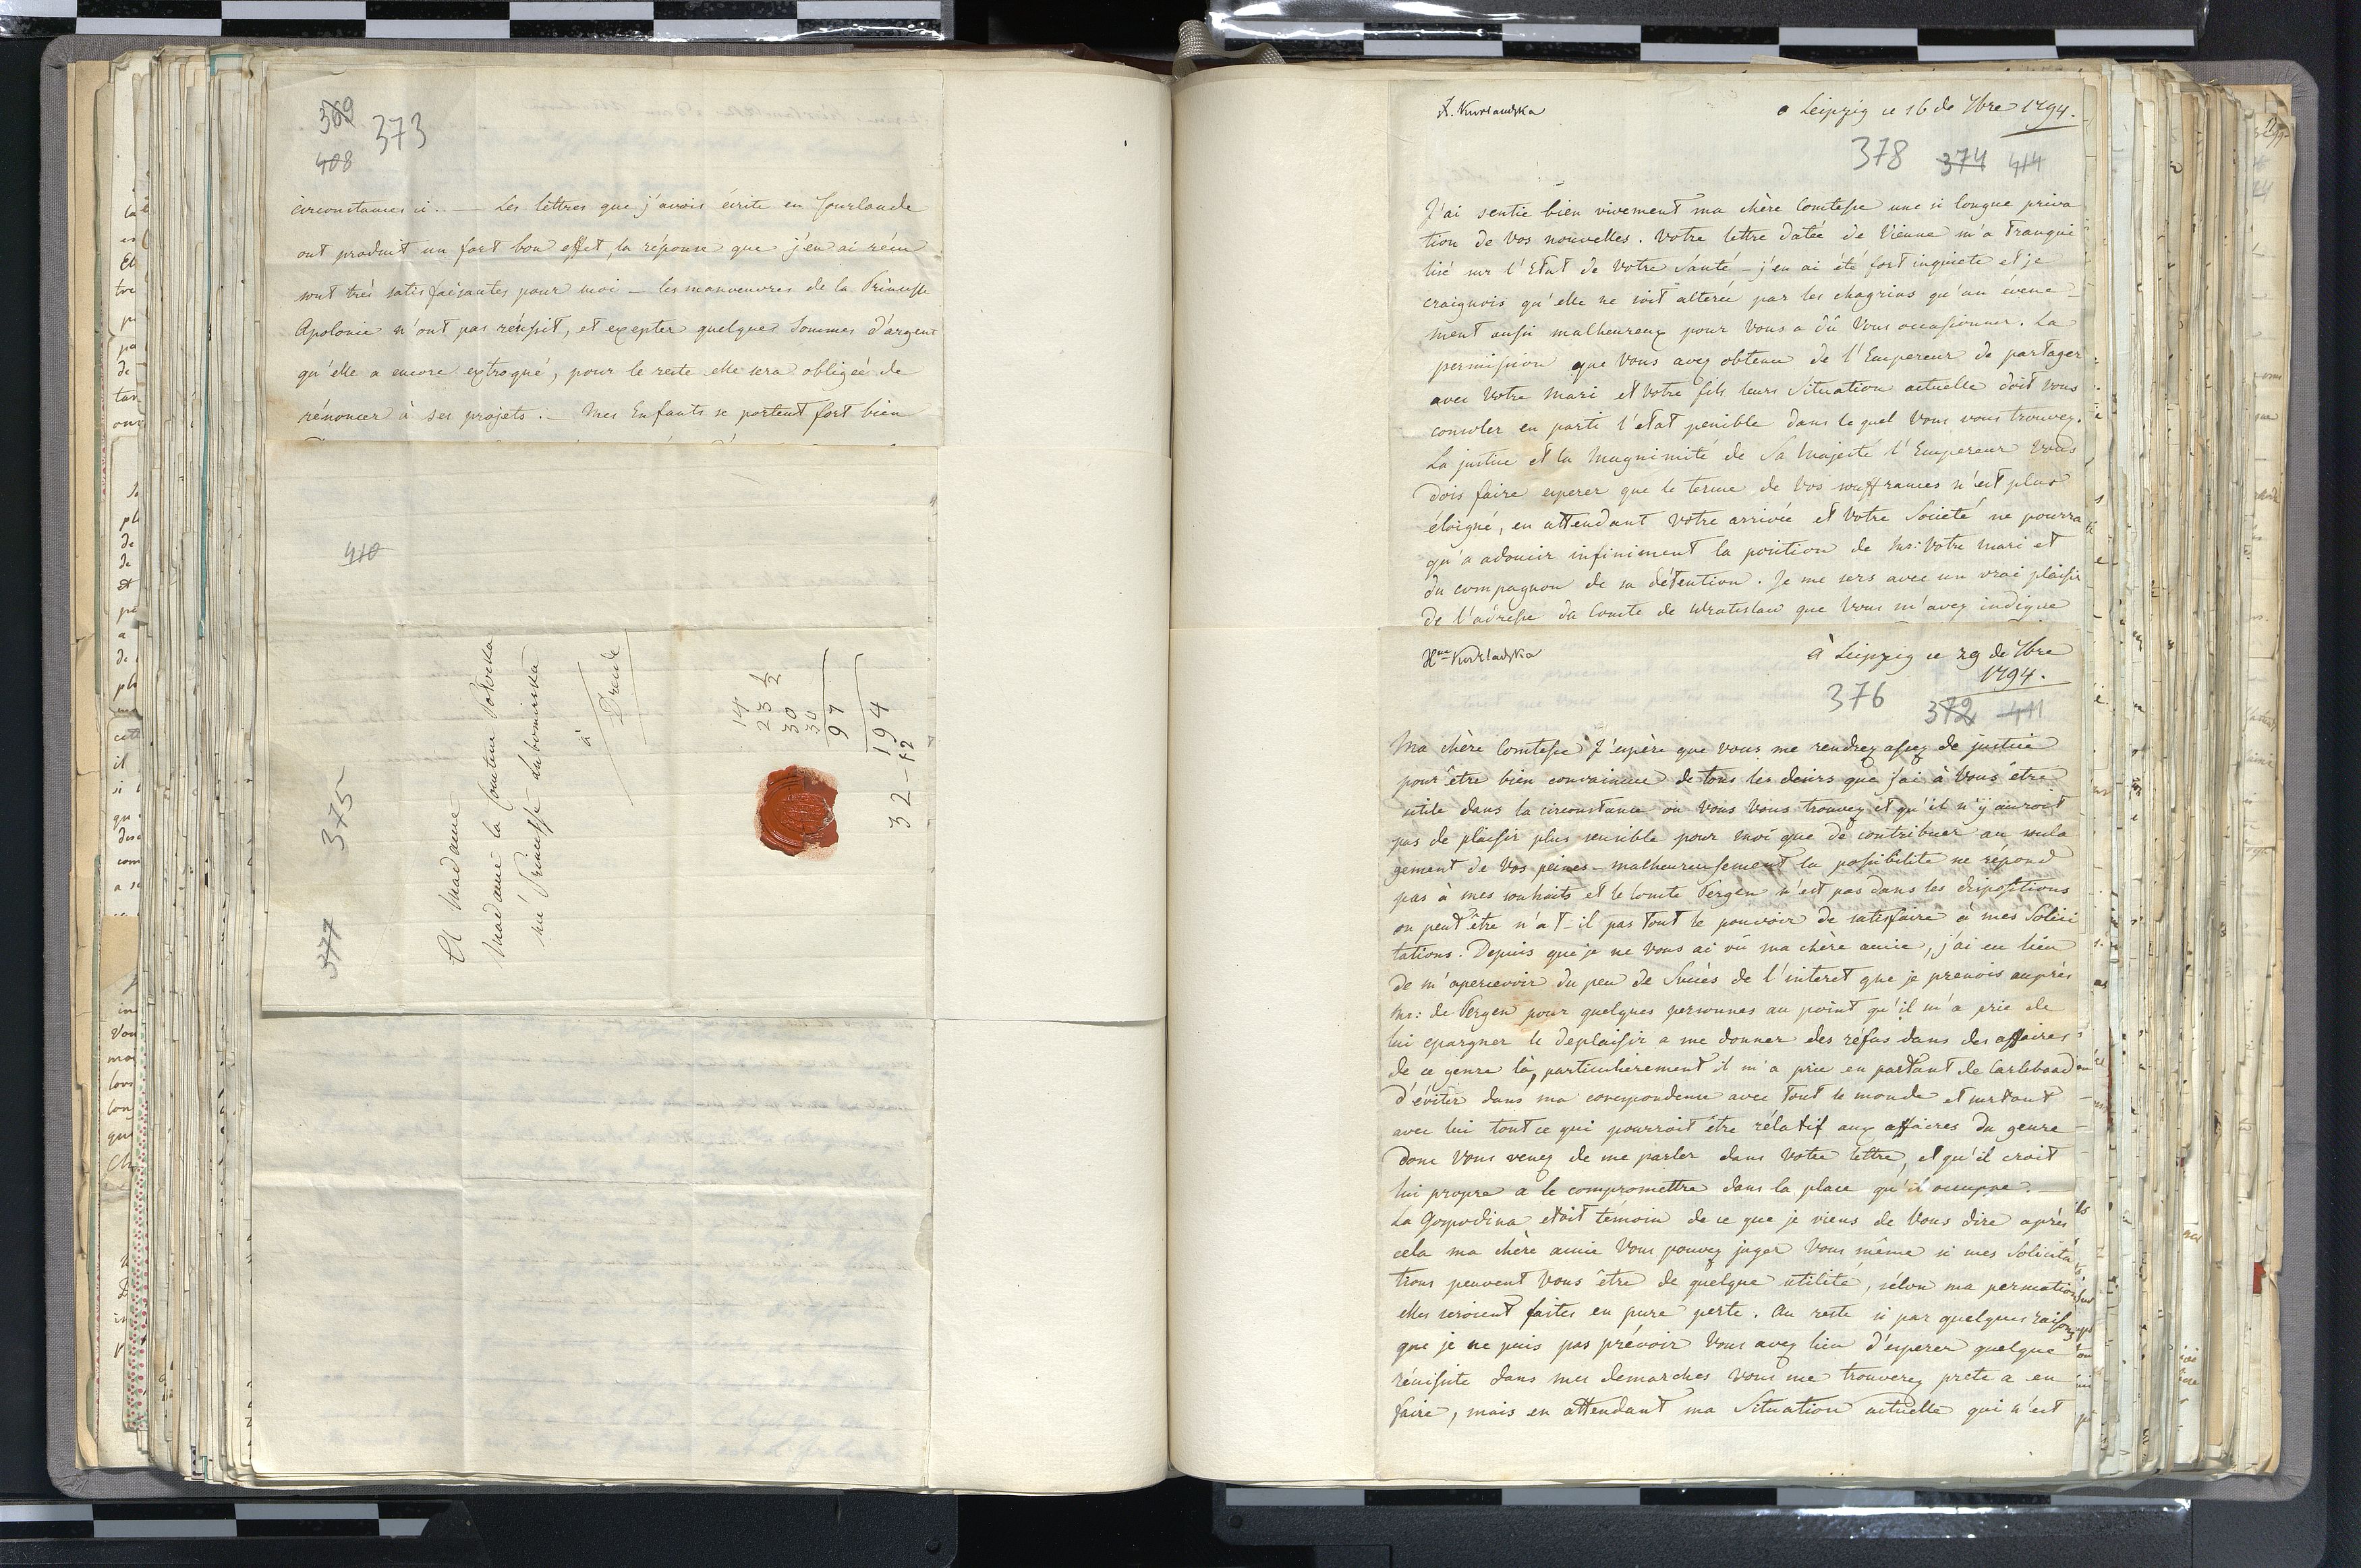 369 373
408
circonstances ci.. — Les lettres que j'avois écrite en Courlande
ont produit un fort bon effet, la réponse que j'en ai réçu
sont très satisfaisantes pour moi — les manoeuvres de la Princesse
Apolonie n'ont pas réussit, et exepter quelques Sommes d'argent
qu'elle a encore extroqué, pour le reste elle sera obligée de
rénoncer à ses projets. — Mes Enfants se portent fort bien
410
375
377
A Madame
Madame la Comtesse Potocka
née Princesse Lubomirska
à
14
23 1/2
30
30
97
194
32
X. Kurlandzka
a Leipzig ce 16 de 9bre 1794.
378 374 414
J'ai sentie bien vivement ma chère Comtesse une si longue priva
tion de vos nouvelles. Votre lettre datée de Vienne m'a tranqui
lisé sur l'Etat de votre Santé — j'en ai été fort inquiete et je
craignois qu'elle ne soit alterée par les chagrins qu'un évene
ment aussi malheureux pour vous a dû vous occasionner. La
permission que vous avez obtenu de l'Empereur de partager
avec votre Mari et votre fils leurs Situation actuelle doit vous
consoler en parti l'etat penible dans lequel vous vous trouvez.
La justice et la Magnimité de Sa Majesté l'Empereur vous
dois faire esperer que le terme de vos souffrances n'est plus
éloigné, en attendant votre arrivée et votre Societé ne pourra
qu'a adoucir infiniment la position de Mr: votre Mari et
du compagnon de sa détention. Je me sers avec un vrai plaisir
de l'adresse du Comte de Wratislaw que vous m'avez indiqué
Xna Kurlandzka
à Leipzig ce 29 de 9bre
1794.
376 372 411
Ma chère Comtesse J'espère que vous me rendrez assez de justice
pour être bien convaincue de tous les desirs que j'ai à vous être
utile dans la circonstance ou vous vous trouvez et qu'il n'y auroit
pas de plaisir plus sensible pour moi que de contribuer au soula
gement de vos peines — malheureusement la possibilité ne répond
pas à mes souhaits et le Comte Pergen n'est pas dans les dispositions
ou peut être n'at-il pas tout le pouvoir de satisfaire à mes Solici
tations. Depuis que je ne vous ai vû ma chère amie, j'ai eu lieu
de m'apercevoir du peu de Succès de l'interet que je prenois auprès
Mr: de Pergen pour quelques personnes au point qu'il m'a prié de
lui epargner le deplaisir a me donner des réfus dans des affaires
de ce genre là, particulierement il m'a prié en partant de Carlsbaad
d'éviter dans ma corespondence avec tout le monde et surtout
avec lui tout ce qui pourroit être rélatif aux affaires du genre
dont vous venez de me parler dans votre lettre, et qu'il croit
lui propre a le compromettre dans la place qu'il occuppe. —
La Gospodina etoit témoin de ce que je viens de vous dire après
cela ma chère amie vous pouvez juger vous même si mes Solicita
tions peuvent vous être de quelque utilité, sélon ma
elles seroient faites en pure perte. Au reste si par quelques raisons
que je ne puis pas prévoir vous avez lieu d'esperer quelque
réussite dans mes demarches vous me trouverez prete a en
faire, mais en attendant ma Situation actuelle qui n'est